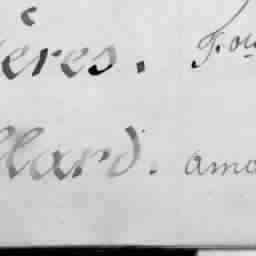 ères. Fou
llard. amo